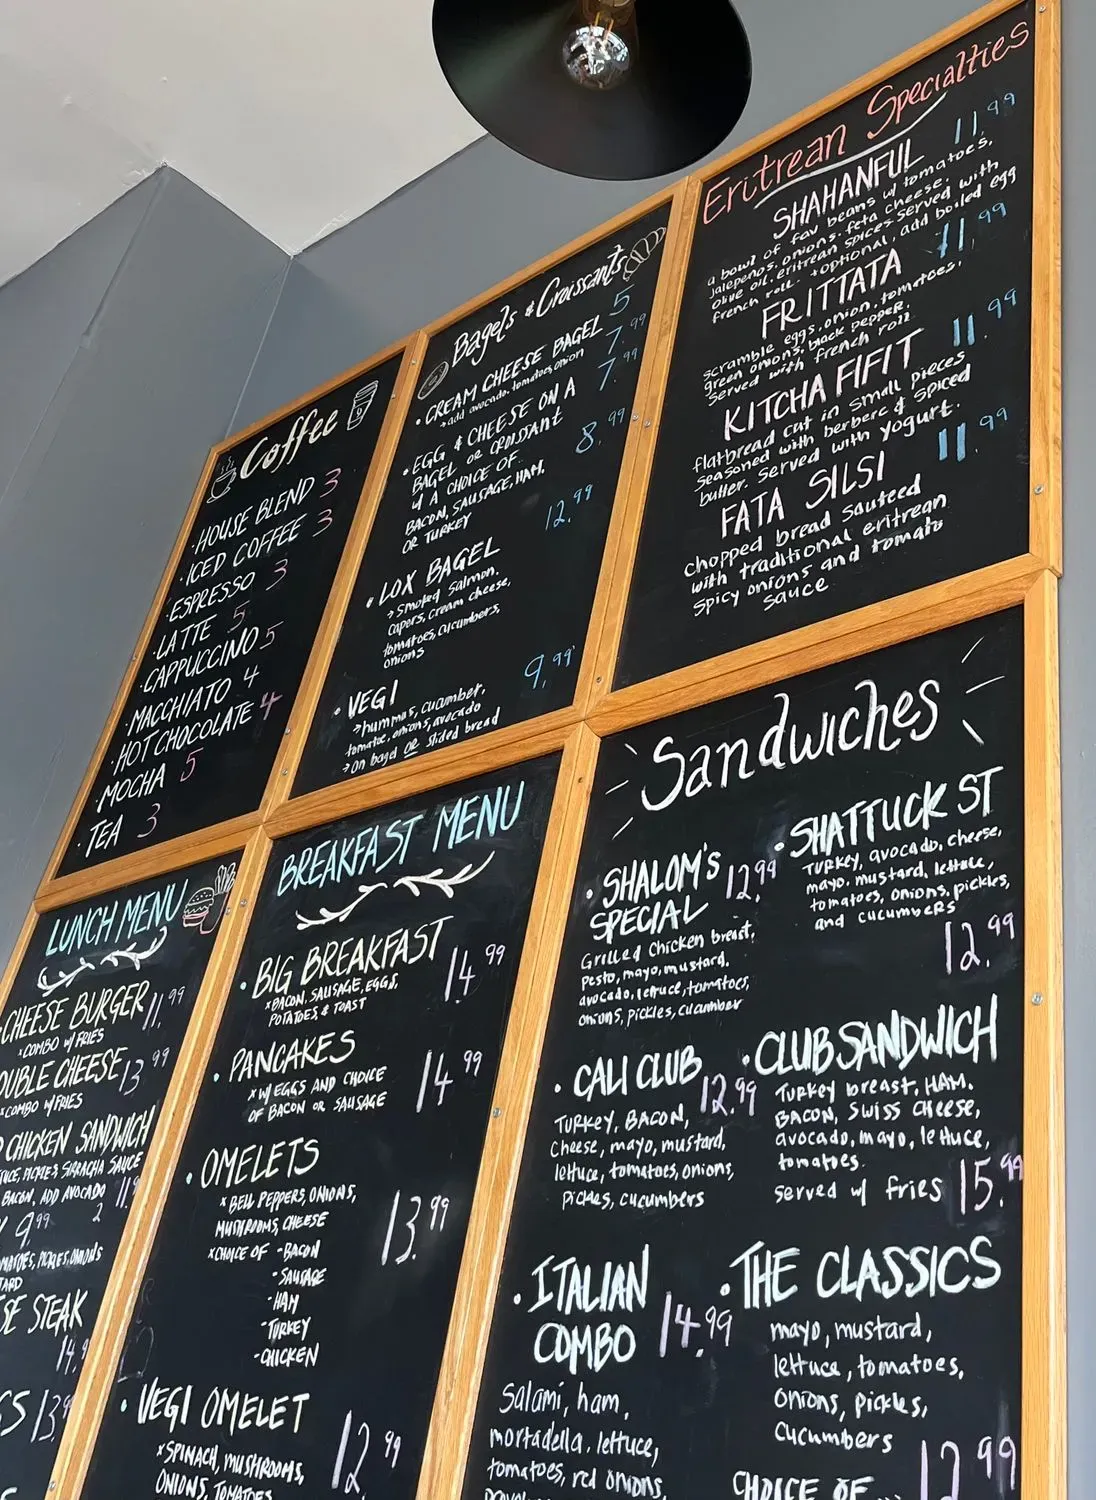 Coffee
·HOUSE BLEND 3
·ICED COFFEE 3
·ESPRESSO 3
·LATTE 5
·CAPPUCCINO 5
·MACCHIATO 4
·HOT CHOCOLATE 4
·MOCHA 5
·TEA 3
Bagels & Croissants
·CREAM CHEESE BAGEL 5
→add avocado, tomatoes, onion 7.99
·EGG & CHEESE ON A 7.99
BAGEL OR CROISSANT
w/ A CHOICE OF 8.99
BACON, SAUSAGE, HAM,
OR TURKEY
·LOX BAGEL 12.99
→Smoked Salmon,
Capers, cream cheese,
tomatoes, cucumbers,
onions
·VEGI 9.99
→hummus, cucumber,
tomatoe, onions, avocado
→On bagel OR slided bread
Eritrean Specialties
SHAHANFUL 11.99
a bowl of fav beans w/ tomatoes,
jalepenos, onions, feta cheese,
olive oil, eritrean spices. Served with
french roll. *optional, add boiled egg
FRITTATA 11.99
scramble eggs, onion, tomatoes,
green onions, black pepper.
Served with french roll
KITCHA FIFIT 11.99
flatbread cut in small pieces
seasoned with berbere & spiced
butter. Served with yogurt.
FATA SILSI 11.99
chopped bread sauteed
with traditional eritrean
spicy onions and tomato
sauce
LUNCH MENU
CHEESE BURGER 11.99
×COMBO w/ FRIES
OUBLE CHEESE 13.99
×COMBO w/ FRIES
CHICKEN SANDWICH
TUCE, PICKLES, SIRRACHA SAUCE
BACON, ADD AVOCADO 11.9
9.99 2
MATOES, PICKLES, ONIONS
TARD
SE STEAK
14.9
GS 13.9
BREAKFAST MENU
·BIG BREAKFAST 14.99
×BACON, SAUSAGE, EGGS,
POTATOES & TOAST
·PANCAKES 14.99
×W/ EGGS AND CHOICE
OF BACON OR SAUSAGE
·OMELETS
×BELL PEPPERS, ONIONS,
MUSHROOMS, CHEESE 13.99
×CHOICE OF -BACON
-SAUSAGE
-HAM
-TURKEY
-CHICKEN
·VEGI OMELET 12.99
×SPINACH, MUSHROOMS,
ONIONS, TOMATOES
Sandwiches
·SHALOM'S 12.99
SPECIAL
Grilled Chicken breast,
pesto, mayo, mustard,
avocado, lettuce, tomatoes,
onions, pickles, cucumber
·SHATTUCK ST
TURKEY, avocado, cheese,
mayo, mustard, lettuce,
tomatoes, onions, pickles,
and cucumbers
12.99
·CALI CLUB 12.99
TURKEY, BACON,
Cheese, mayo, mustard,
lettuce, tomatoes, onions,
pickles, cucumbers
·CLUB SANDWICH
TURKEY breast, HAM.
BACON, SWISS CHEESE,
avocado, mayo, lettuce,
tomatoes.
served w/ fries 15.99
·ITALIAN
COMBO 14.99
Salami, ham,
mortadella, lettuce,
tomatoes, red onions,
·THE CLASSICS
mayo, mustard,
lettuce, tomatoes,
onions, pickles,
cucumbers
12.99
CHOICE OF...